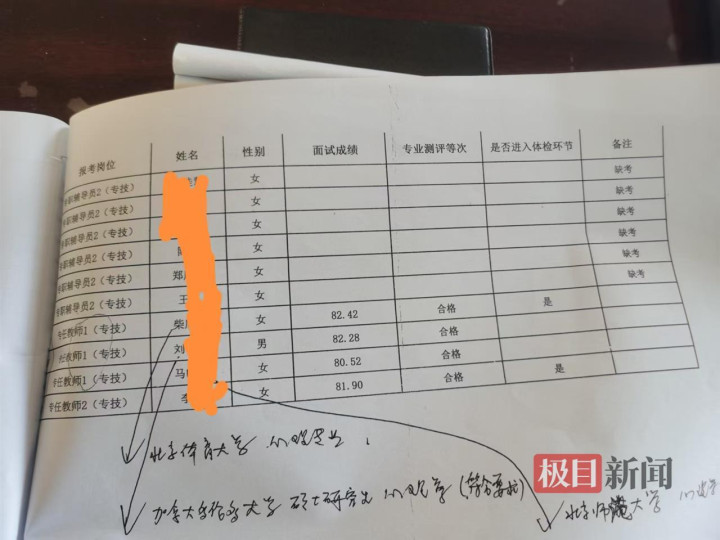 报考岗位 姓名 性别 面试成绩 专业测评等次 是否进入体检环节 备注
专职辅导员2（专技） 女 缺考
专职辅导员2（专技） 女 缺考
专职辅导员2（专技） 女 缺考
专职辅导员2（专技） 女 缺考
专职辅导员2（专技） 郑 女 缺考
专职辅导员2（专技） 王 女 缺考
专任教师1（专技） 柴 女 82.42 合格 是
专任教师1（专技） 刘 男 82.28 合格
专任教师1（专技） 马 女 80.52 合格
专任教师2（专技） 李 女 81.90 合格 是
北京体育大学
加拿大 大学 硕士研究生
北京师范大学
极目新闻